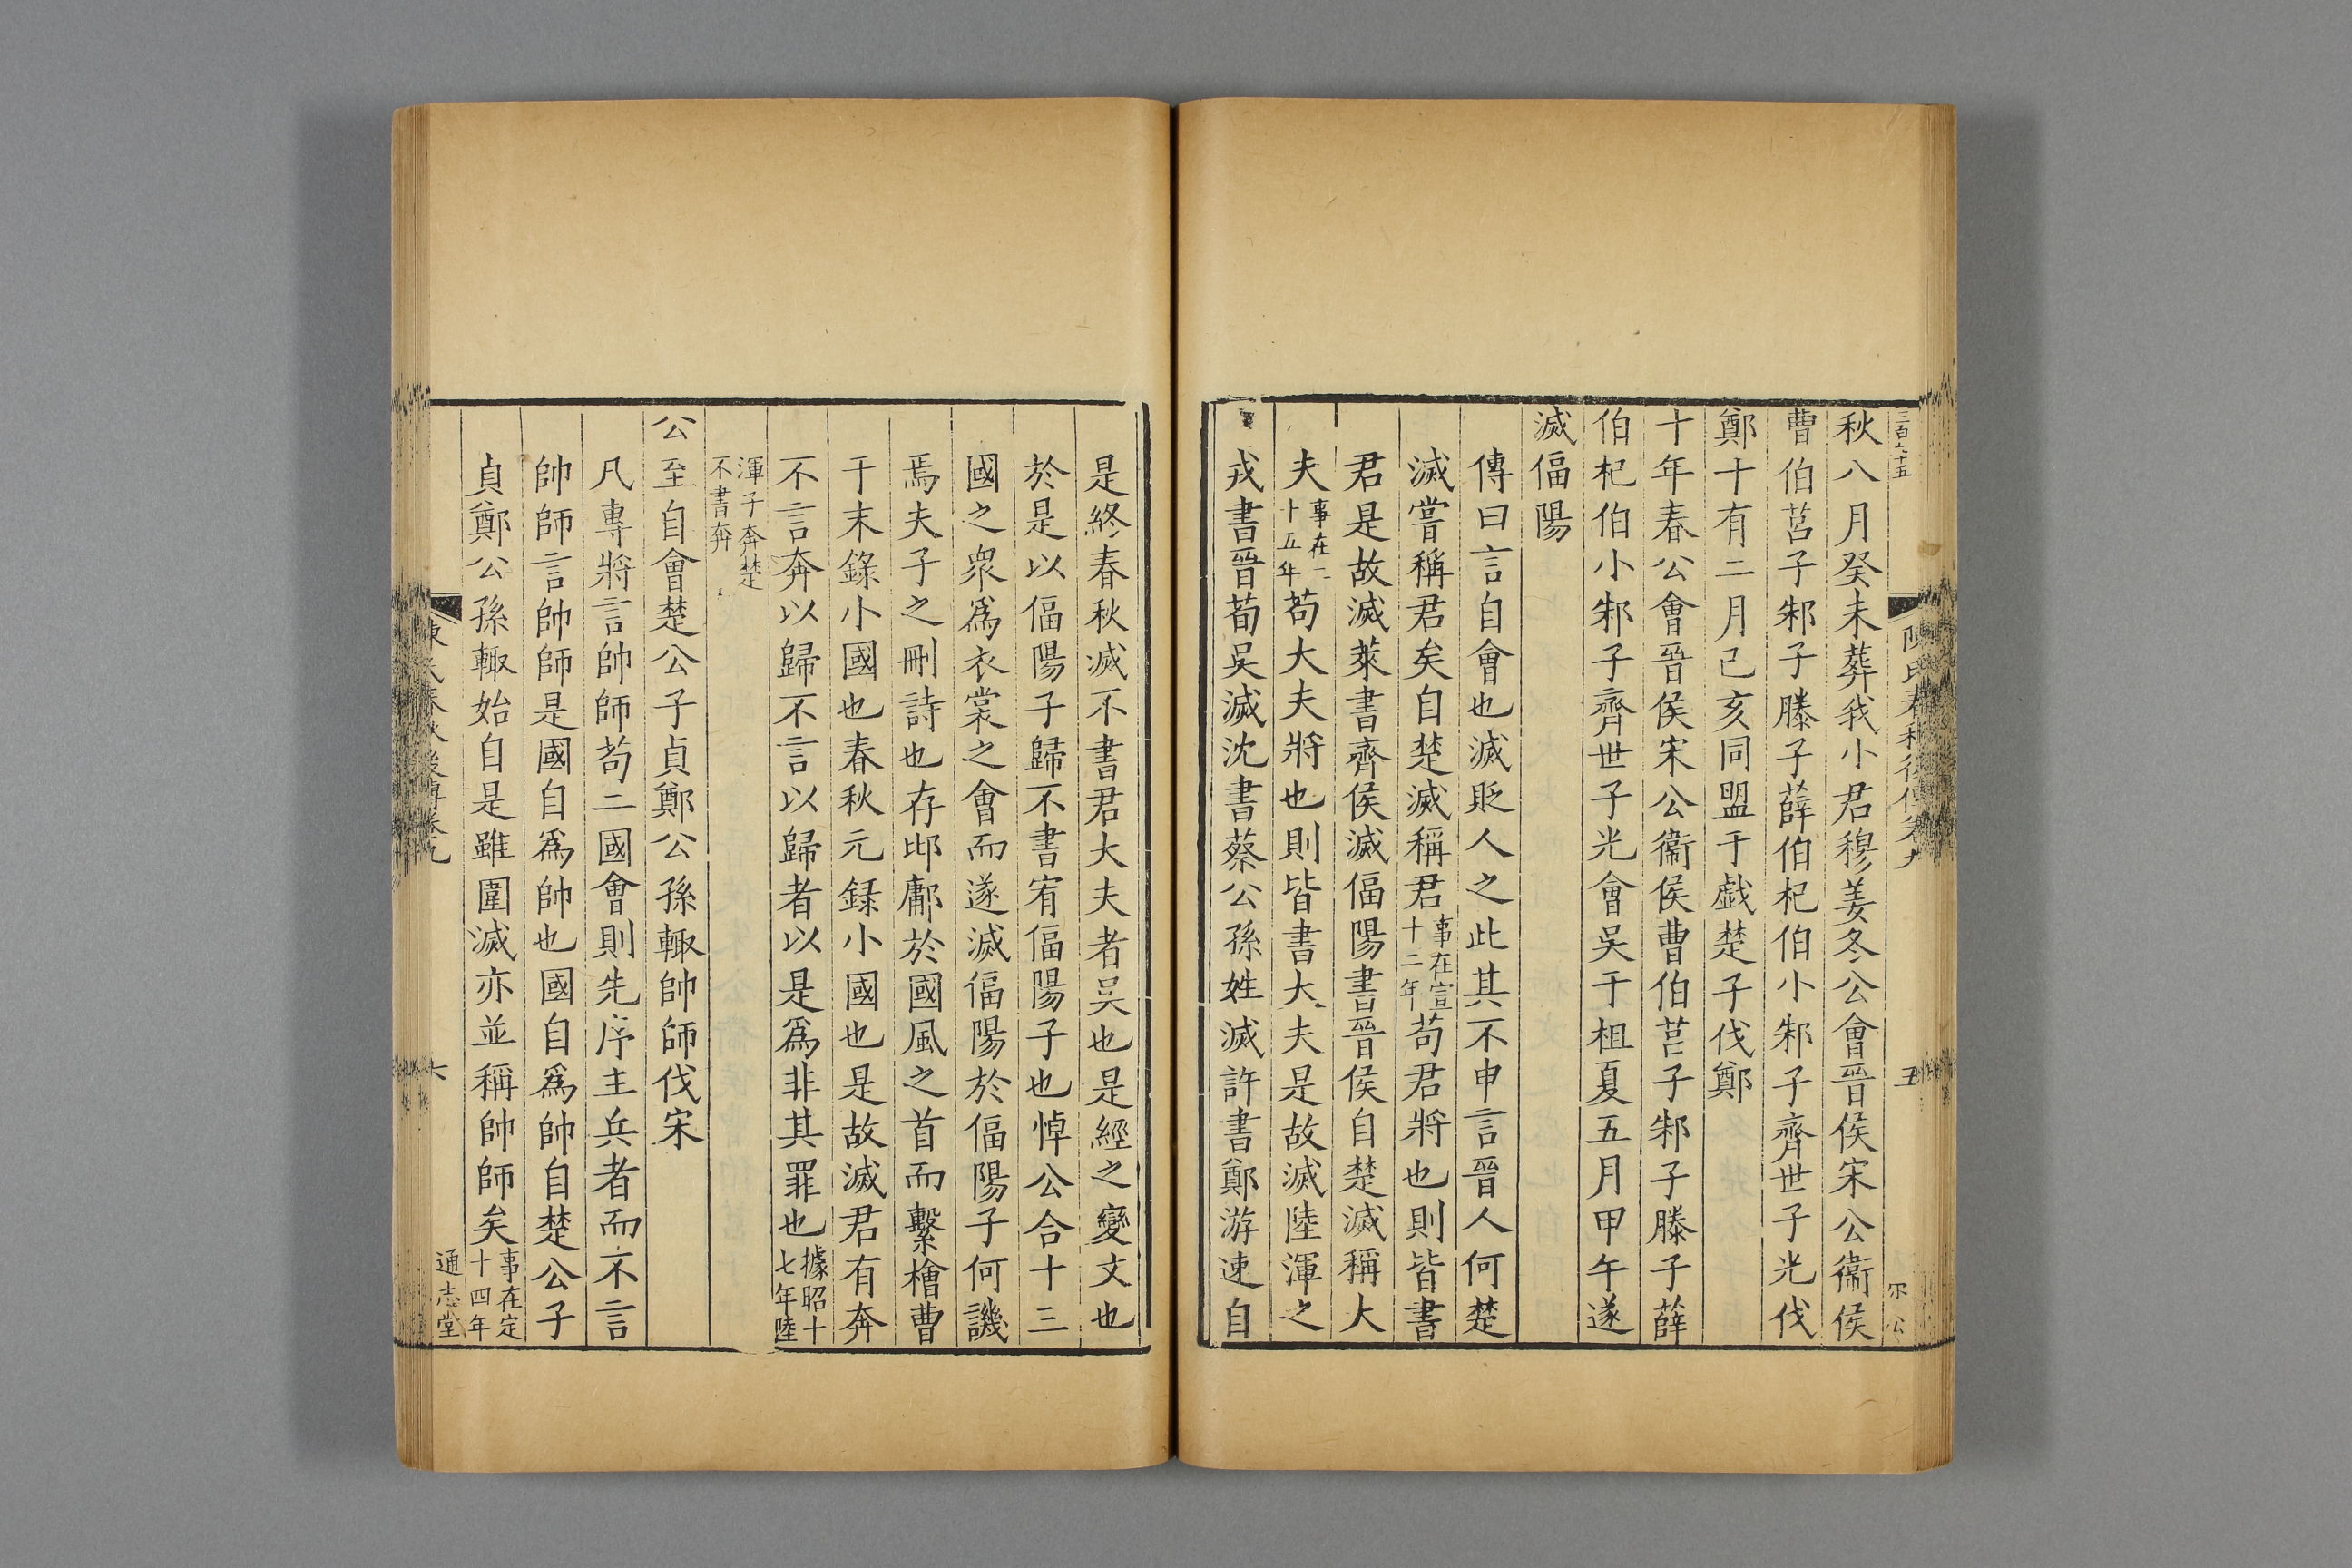 三百七十五
陳氏春秋後傳卷九
五
秋八月癸未葬我小君穆姜冬公會晉侯宋公衞侯
曹伯莒子邾子滕子薛伯杞伯小邾子齊世子光伐
鄭十有二月己亥同盟于戲楚子伐鄭
十年春公會晉侯宋公衞侯曹伯莒子邾子滕子薛
伯杞伯小邾子齊世子光會吳于柤夏五月甲午遂
滅偪陽
傳曰言自會也滅貶人之此其不申言晉人何楚
滅嘗稱君矣自楚滅稱君事在宣十二年苟君將也則皆書
君是故滅萊書齊侯滅偪陽書晉侯自楚滅稱大
夫事在二十五年苟大夫將也則皆書大夫是故滅陸渾之
戎書晉荀吳滅沈書蔡公孫姓滅許書鄭游速自
是終春秋滅不書君大夫者吳也是經之變文也
於是以偪陽子歸不書宥偪陽子也悼公合十三
國之衆爲衣裳之會而遂滅偪陽於偪陽子何譏
焉夫子之刪詩也存邶鄘於國風之首而繫檜曹
于末錄小國也春秋元録小國也是故滅君有奔
不言奔以歸不言以歸者以是爲非其罪也據昭十七年陸
渾子奔楚不書奔
公至自會楚公子貞鄭公孫輒帥師伐宋
凡專將言帥師苟二國會則先序主兵者而不言
帥師言帥師是國自爲帥也國自爲帥自楚公子
貞鄭公孫輒始自是雖圍滅亦並稱帥師矣事在定十四年
陳氏春秋後傳卷九
六
通志堂